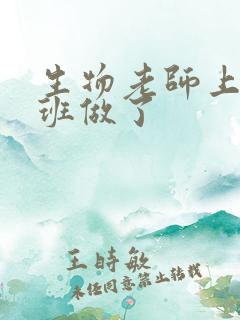 生物老师上
班做了
王时敏
未经同意禁止转载